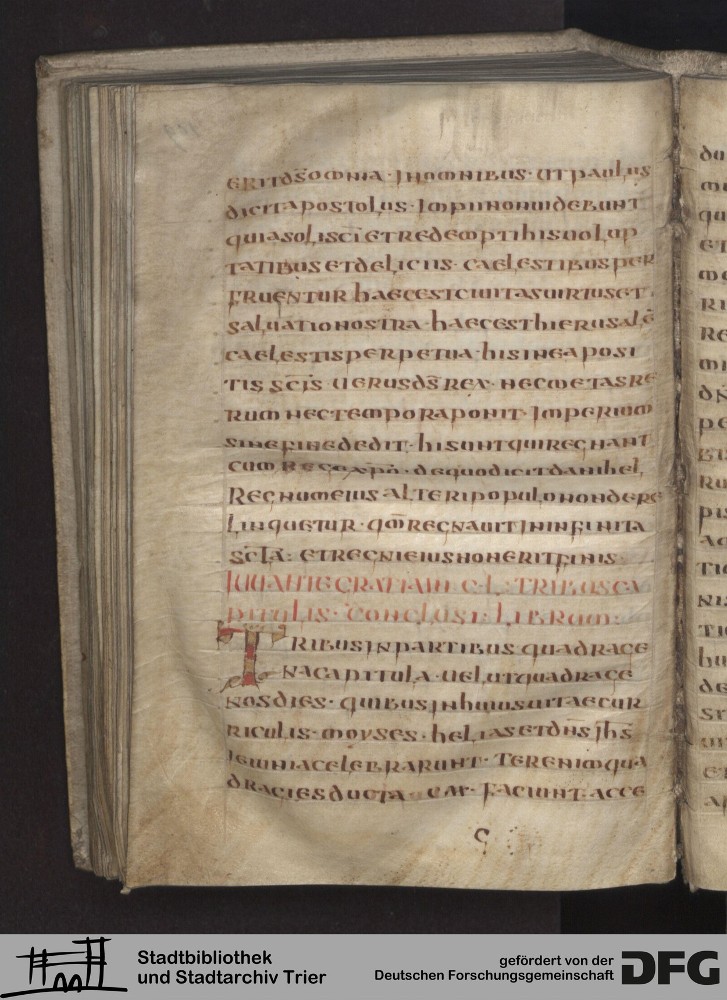 ERITDS̄OMNIA · INOMNIBUS · UTPAULUS
DICITAPOSTOLUS · IMPIINONUIDEBUNT
QUIASOLISSC̄IETREDEMPTIHISUOLUP
TATIBUSETDELICIIS · CAELESTIBUSPER
FRUENTUR HAECESTCIUITASUIRTUSET
SALUATIONOSTRA · HAECESTHIERUSALĒ
CAELESTISPERPETUA · HISINEAPOSI
TIS SC̄IS UERUSDS̄REX · NECMETASRE
RUM NECTEMPORAPONIT · IMPERIUM
SINEFINEDEDIT · HISUNTQUIREGNANT
CUMREGEXPO · DEQUODICITDANIHEL
REGNUMEIUSALTERIPOPULONONDERE
LINQUETUR · QM̄REGNAUITININFINITA
SC̄LA : ETREGNIEIUSNONERITFINIS
IUUANTEGRATIAM TRIBUSCA
PITULIS · CONCLUSI · LIBRUM :
TRIBUSINPARTIBUS QUADRAGE
NACAPITULA · UELUTQUADRAGE
NOSDIES · QUIBUSINHUIUSUITAECUR
RICULIS · MOYSES · HELIASETDN̄S IHS̄
IEIUNIACELEBRARUNT · TERENIMQUA
DRACIESDUCTA · FACIUNT · ACCE
Stadtbibliothek
und Stadtarchiv Trier
gefördert von der
Deutschen Forschungsgemeinschaft
DFG